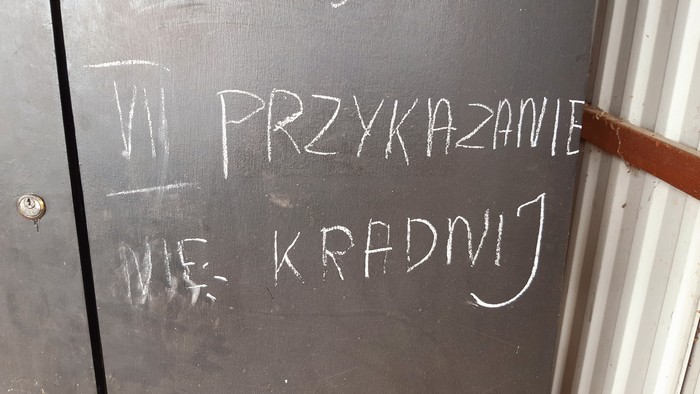 VII PRZYKAZANIE
NIE KRADNIJ